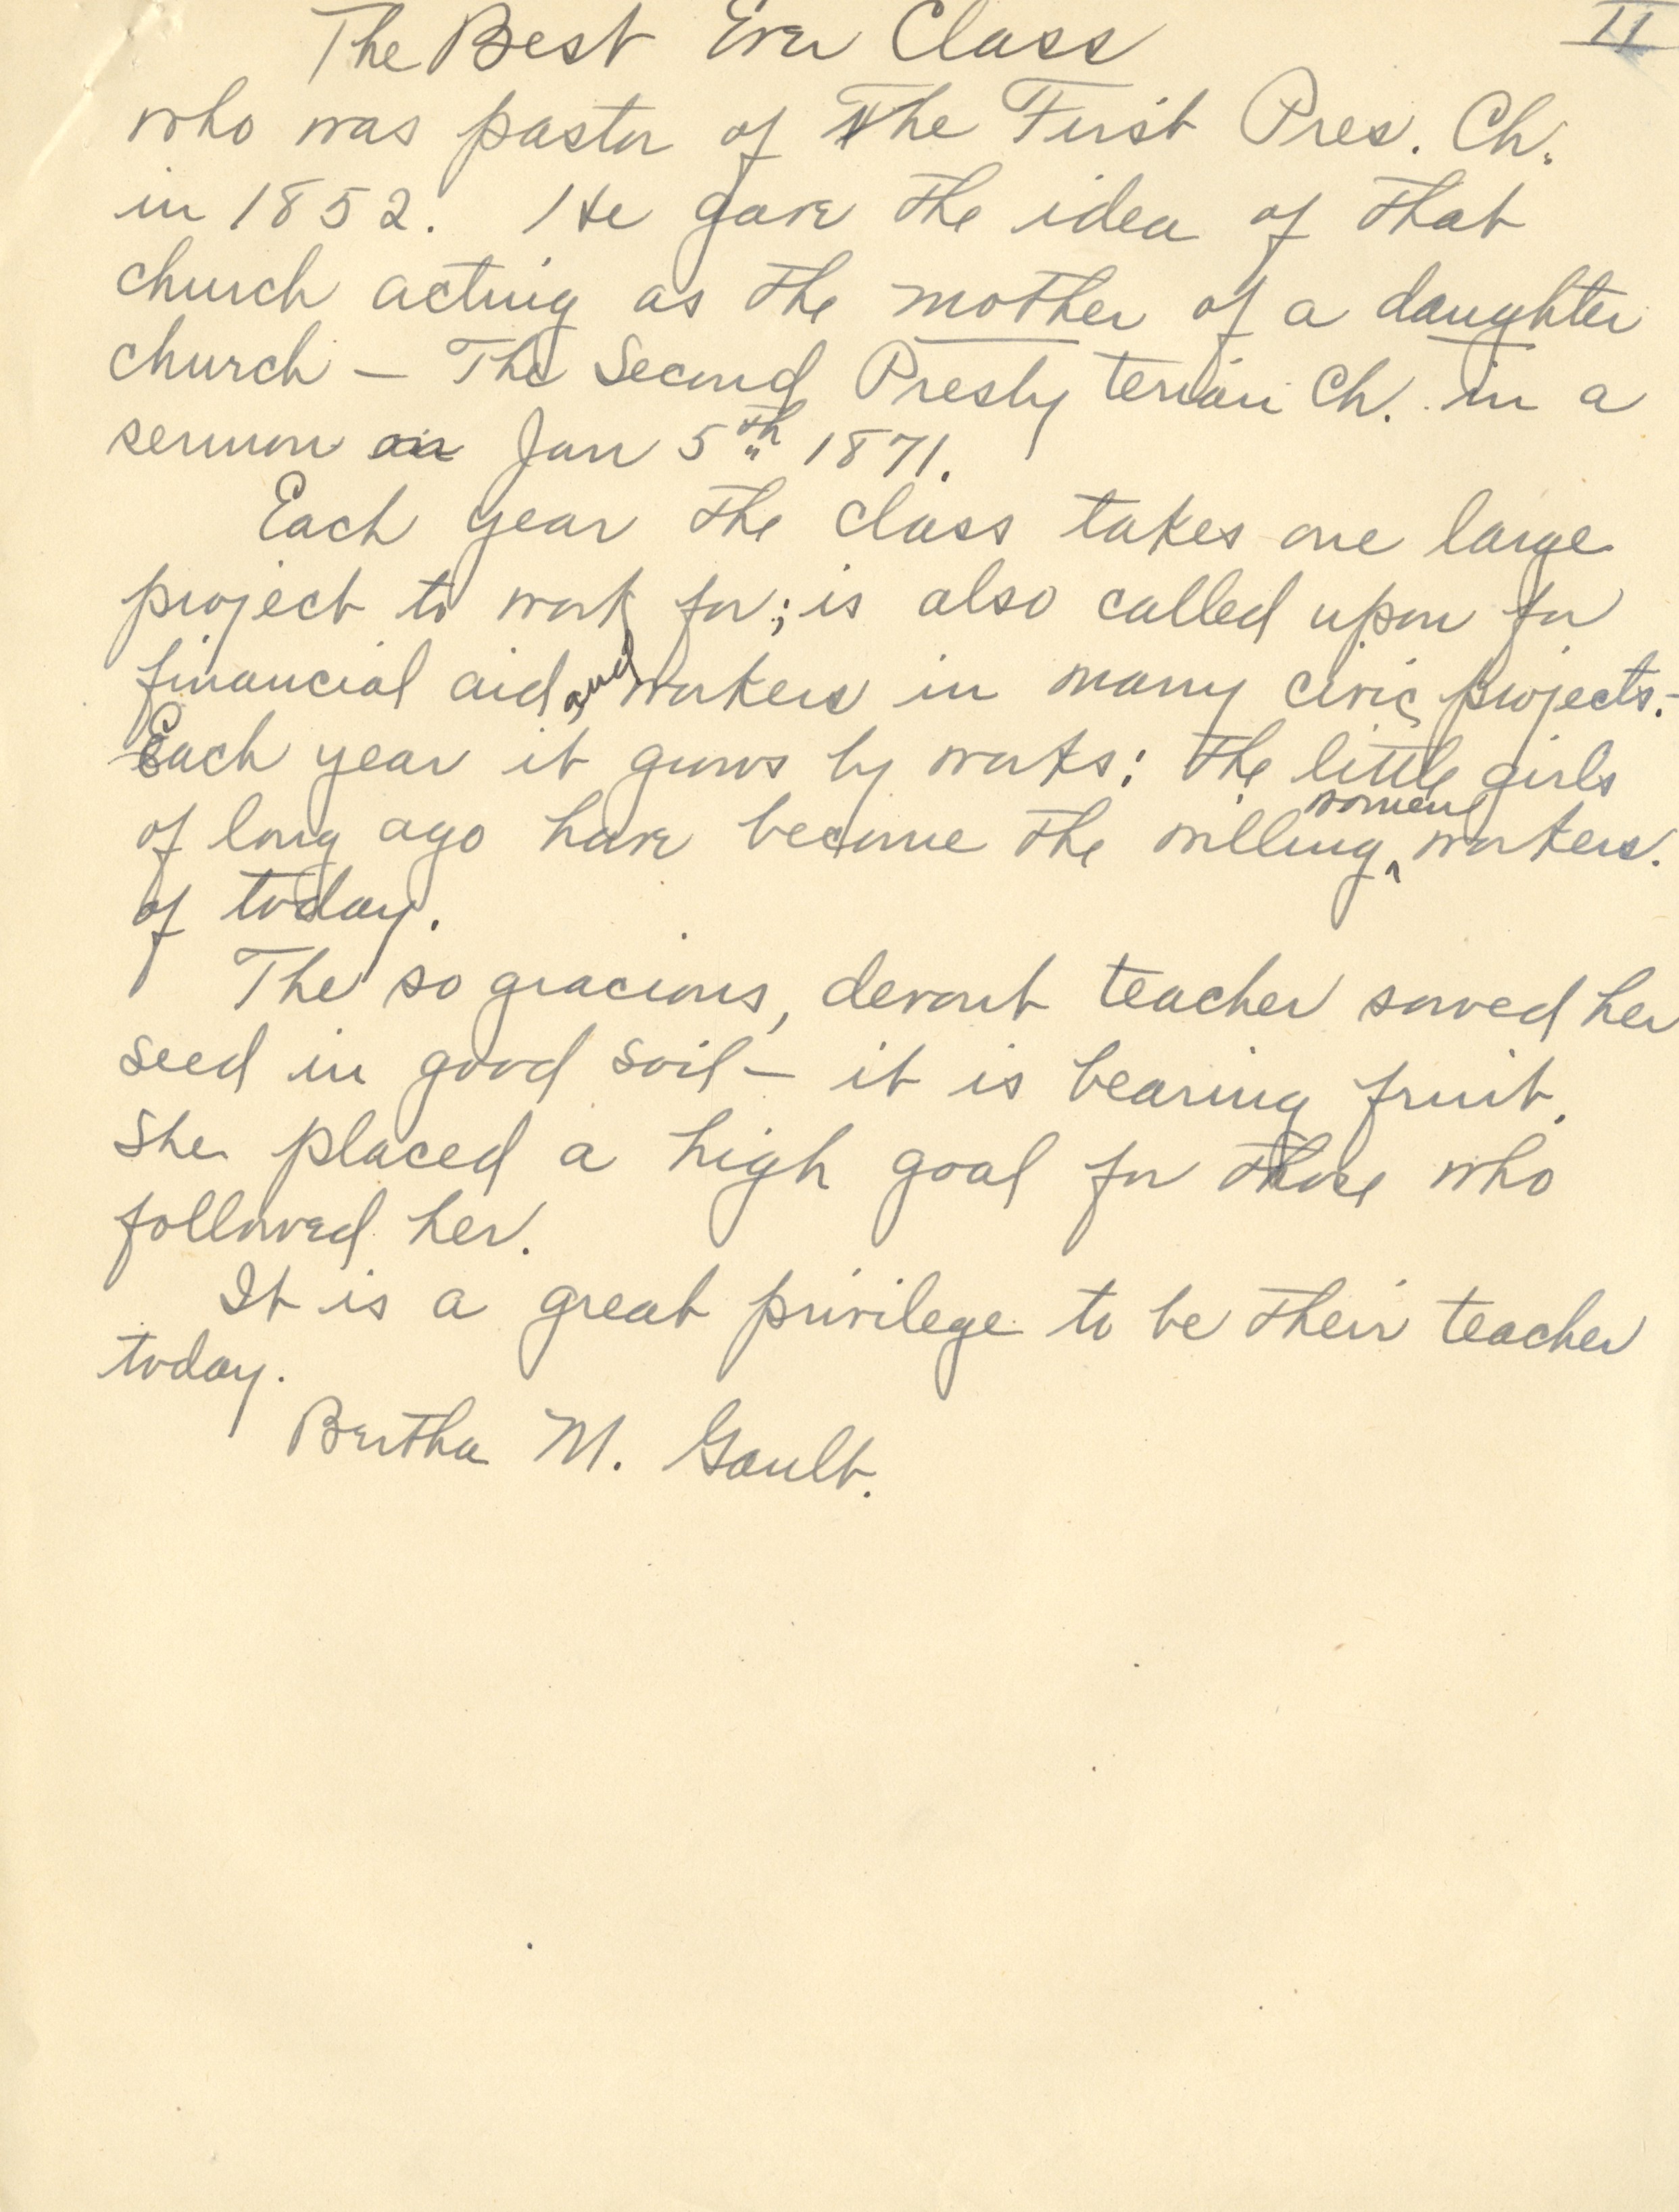 The Best Ever Class II
who was pastor of The First Pres. Ch.
in 1852. He gave the idea of that
church acting as the mother of a daughter
church – The Second Presbyterian Ch. in a
sermon on Jan 5th 1871.
Each year the class takes one large
project to work for; is also called upon for
financial aid, and workers in many civic projects.
Each year it grows by works: the little girls
of long ago have become the willing women workers.
of today.
The so gracious, devout teacher sowed her
seed in good soil – it is bearing fruit.
She placed a high goal for those who
followed her.
It is a great privilege to be their teacher
today.
Bertha M. Gault.